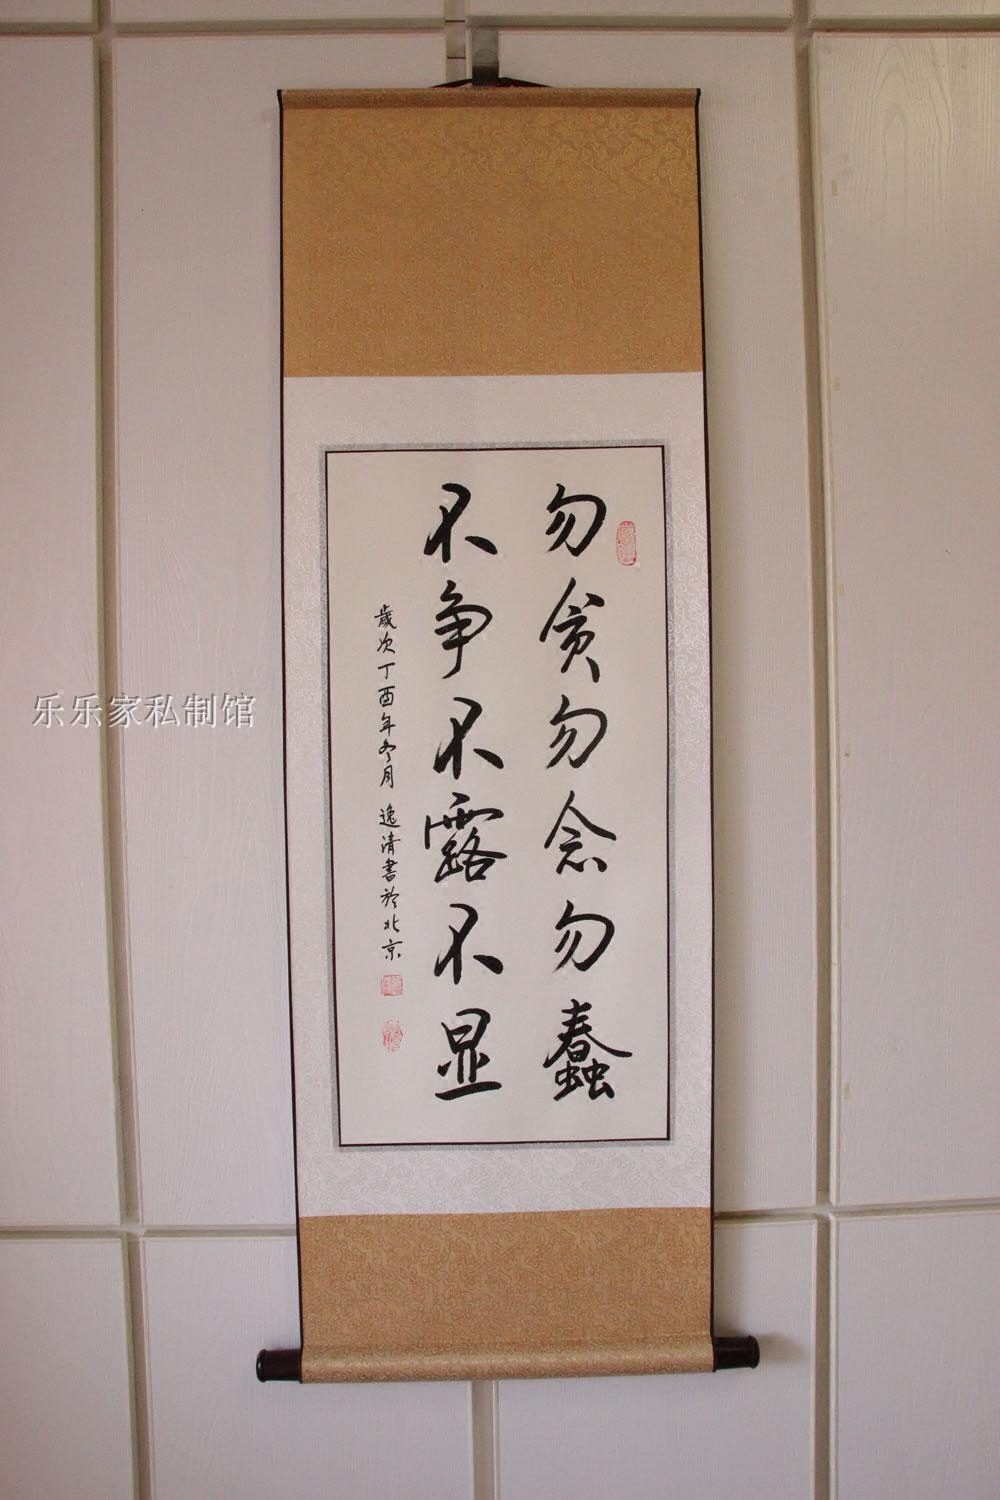 勿贪勿念勿蠢
不争不露不显
歲次丁酉年冬月 逸清書於北京
乐乐家私制馆